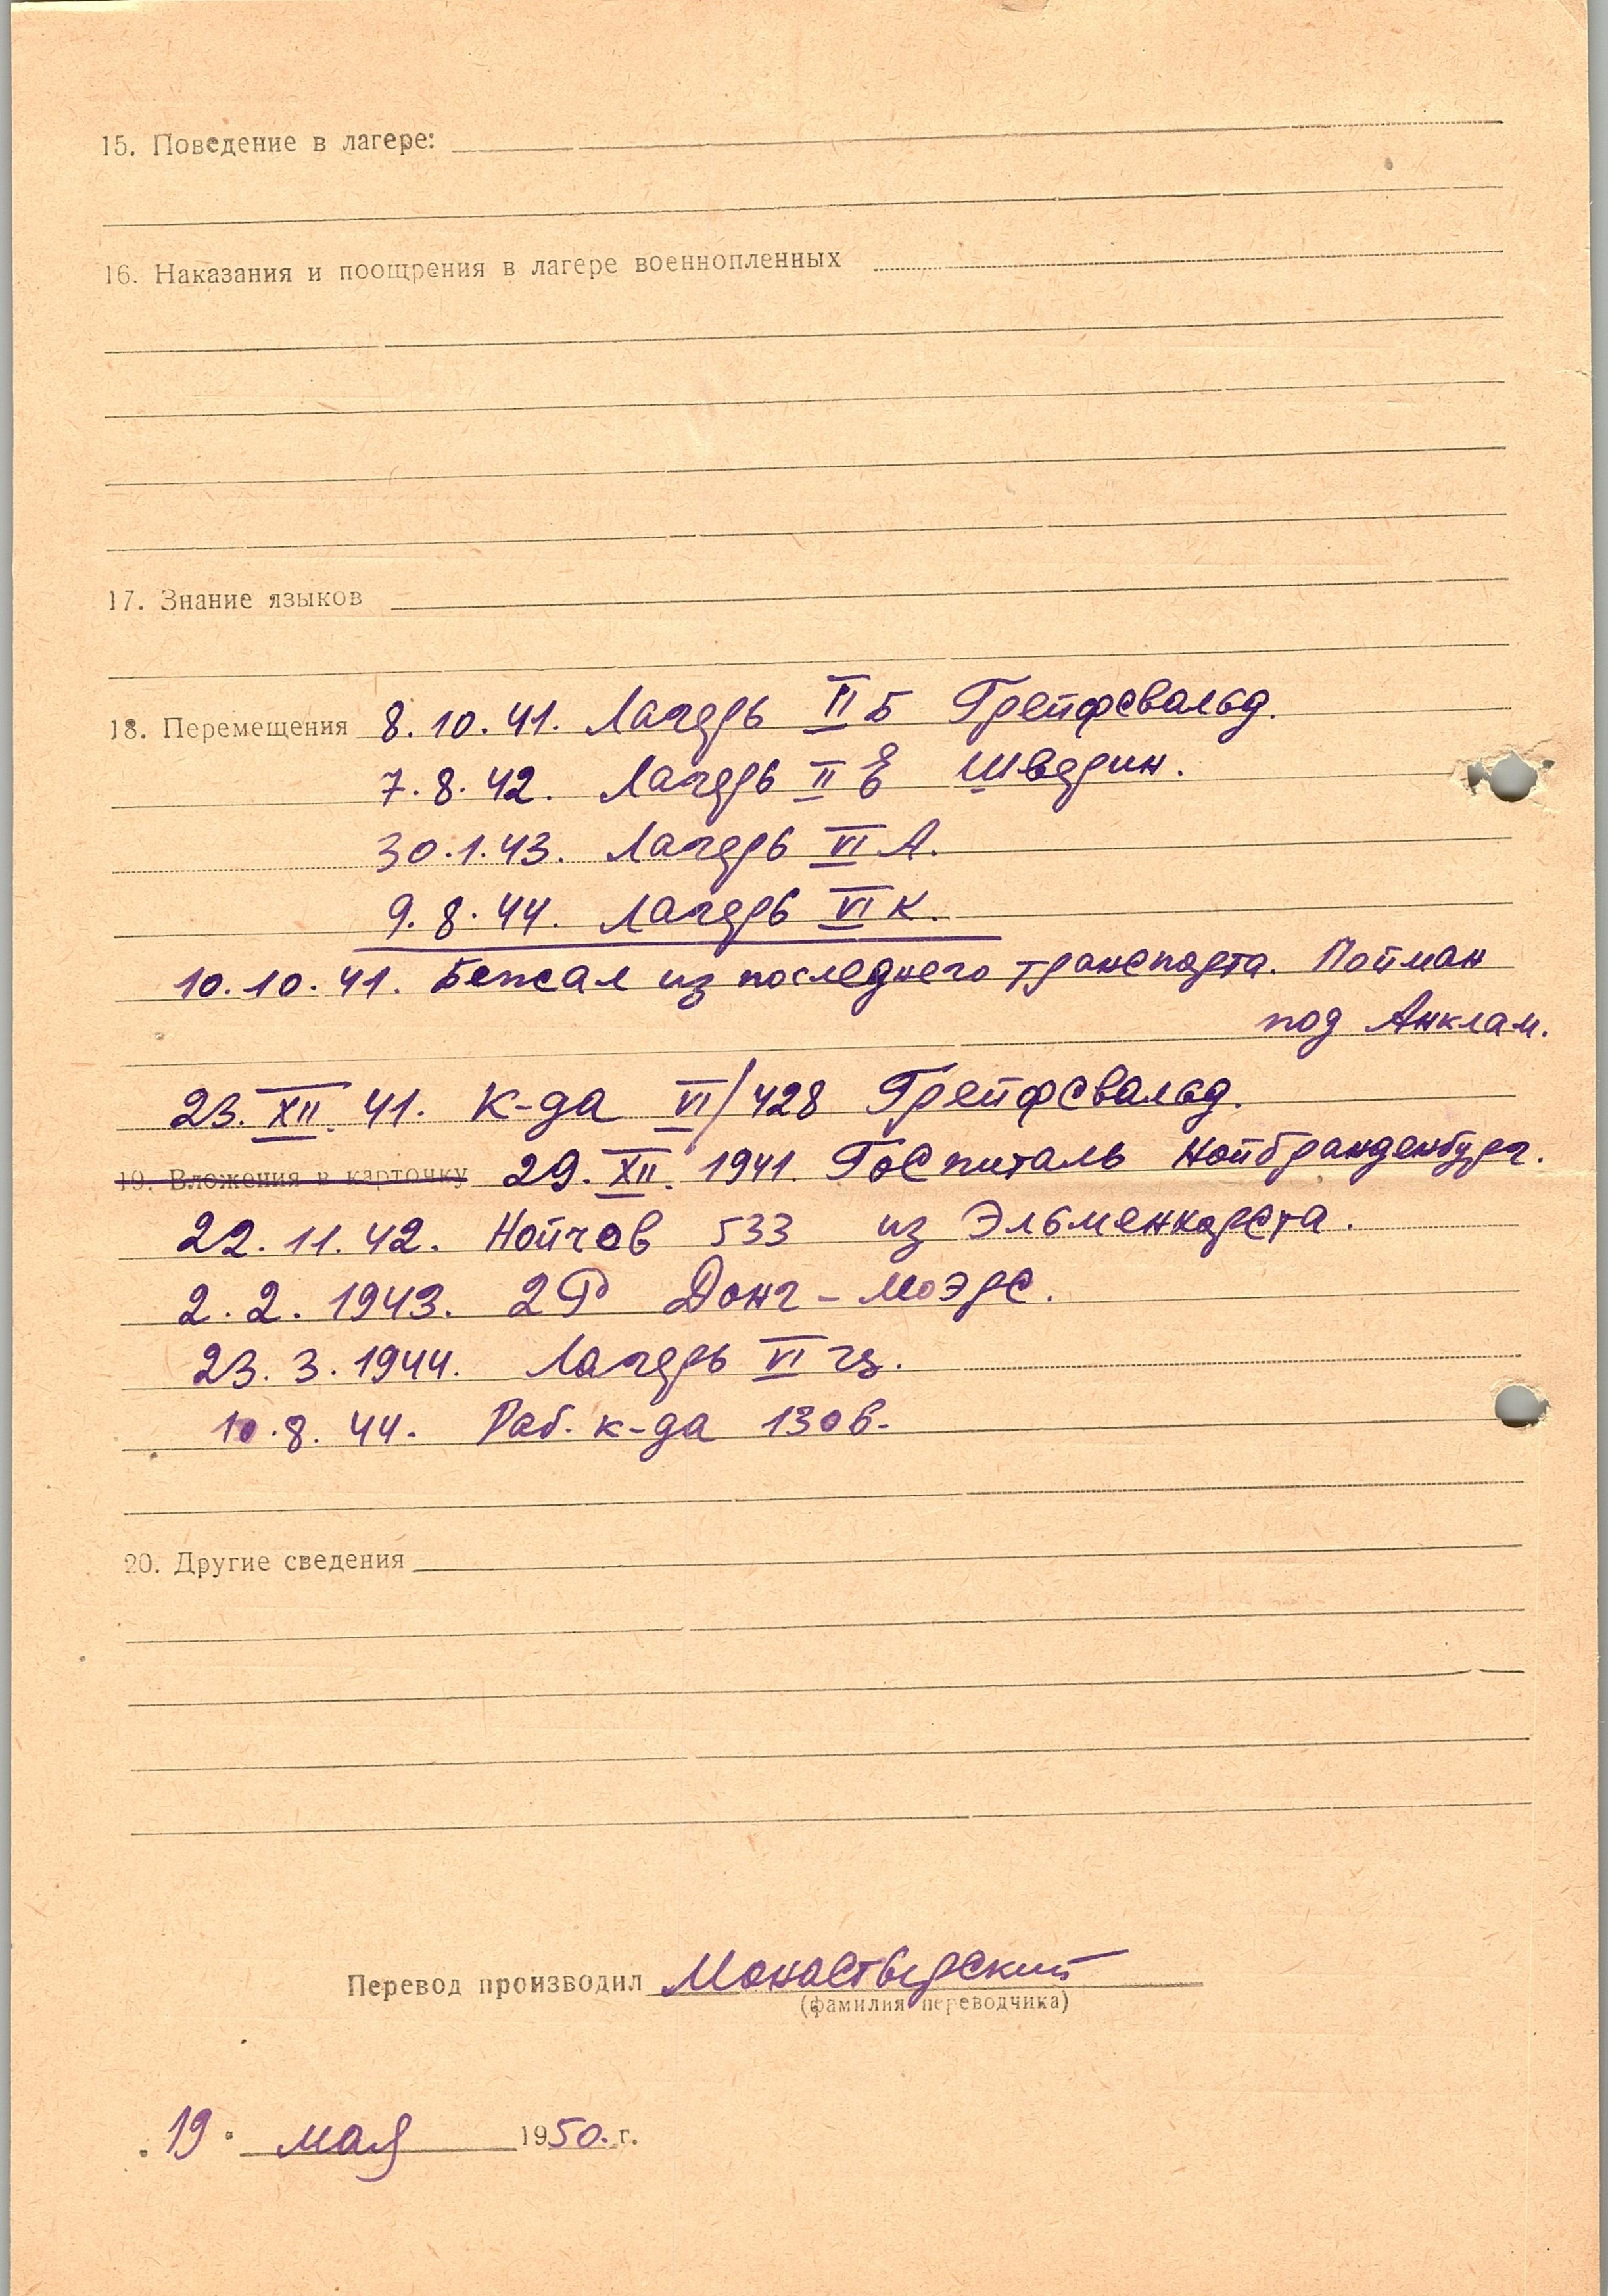 15. Поведение в лагере:
16. Наказания и поощрения в лагере военнопленных
17. Знание языков
18. Перемещения 8.10.41. Лагерь II Б Грейфсвальд.
7.8.42. Лагерь II Е Шверин.
30.1.43. Лагерь VI А.
9.8.44. Лагерь VI К.
10.10.41. Бежал из последнего транспорта. Пойман
под Анклам.
23.XII.41. К-да VI/428 Грейфсвальд.
19. Вложения в карточку 29.XII.1941. Госпиталь Нойбранденбург.
22.11.42. Нойгов 533 из Эльменхорста.
2.2.1943. 2Р Донг-Моэрс.
23.3.1944. Лагерь VI
10.8.44. Раб. к-да 130в.
20. Другие сведения
Перевод производил Монастырский
(фамилия переводчика)
19 мая 1950. г.